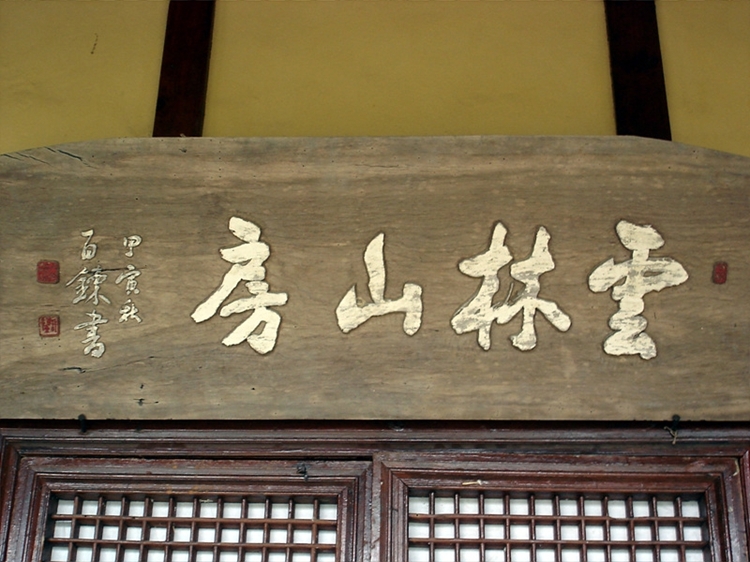 雲林山房
甲寅秋
百鍊書